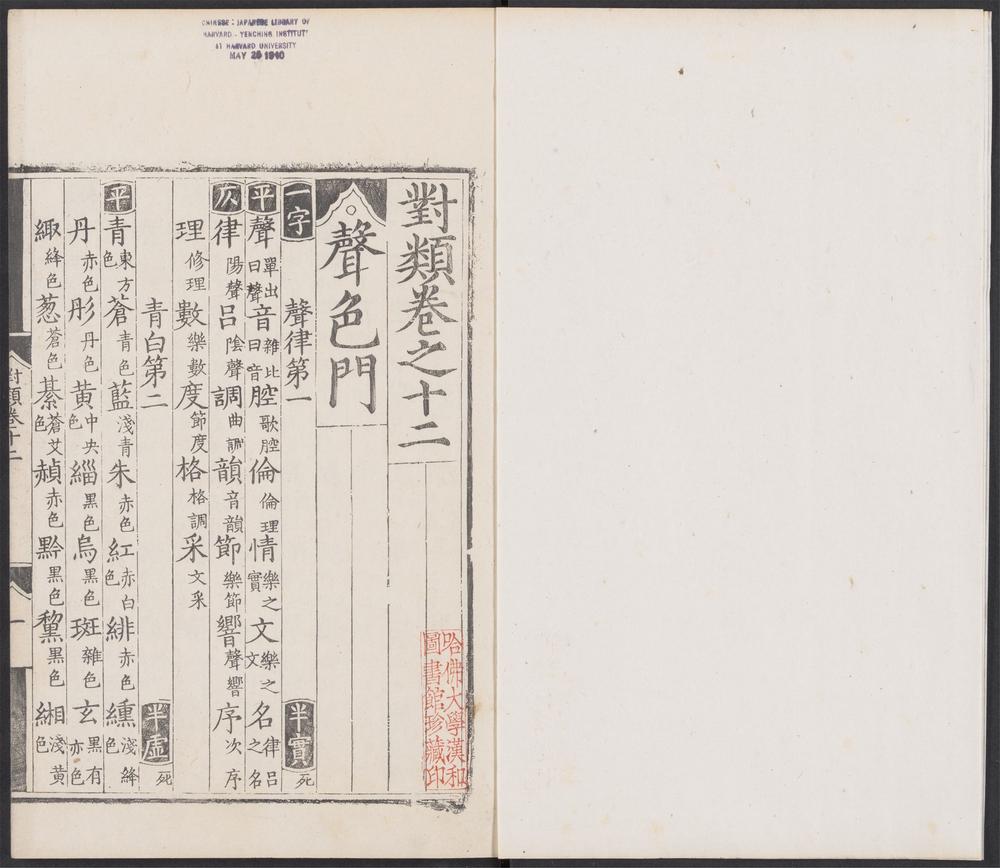 CHINESE - JAPANESE LIBRARY OF
HARVARD - YENCHING INSTITUTE
AT HARVARD UNIVERSITY
MAY 28 1940
對類卷之十二
聲色門
一字 聲律第一 半實 死
平 聲單出曰聲 音雜比曰音 腔歌腔 倫倫理 情樂之實 文樂之文 名律呂之名
仄 律陽聲 呂陰聲 調曲調 韻音韻 節樂節 響聲響 序次序
理修理 數樂數 度節度 格格調 采文采
青白第二 半虛 死
平 青東方色 蒼青色 藍淺青 朱赤色 紅赤白色 緋赤色 纁淺絳色
丹赤色 彤丹色 黄中央色 緇黑色 烏黑色 斑雜色 玄黑有赤色
緅絳色 葱蒼色 綦蒼艾色 赬赤色 黔黑色 黧黑色 緗淺黄色
對類卷十二
一
哈佛大學漢和
圖書館珍藏印